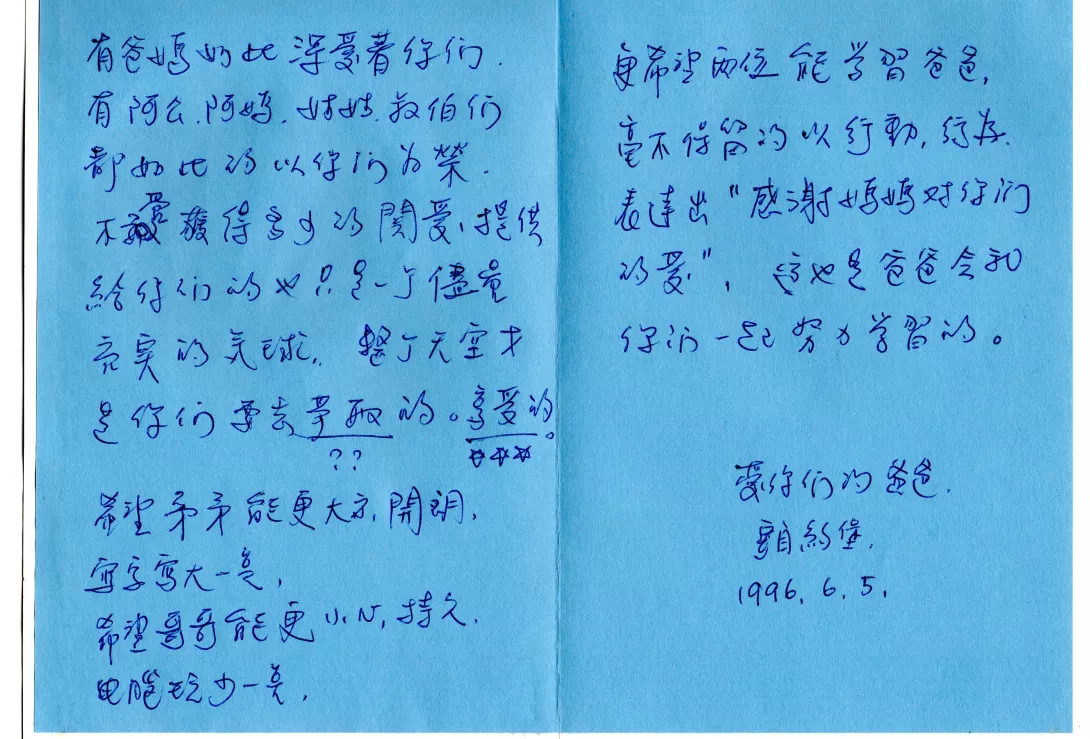 有爸媽如此深愛著你们.
有阿公.阿媽.姑姑.叔伯们
都如此的以你们为榮.
不管獲得多少的関爱,提供
給你们的也只是一个儘量
充実的気球,整个天空才
是你们要去爭取的。享受的。
??
希望矛矛能更大方,開朗,
寫字寫大一点,
希望哥哥能更小心,持久.
电腦玩少一点,
更希望兩位能学習爸爸,
毫不保留的以行動,行为.
表達出"感謝媽媽对你们
的愛",這也是爸爸会和
你们一起努力学習的。
愛你们的爸爸.
自紐約堡.
1996.6.5.